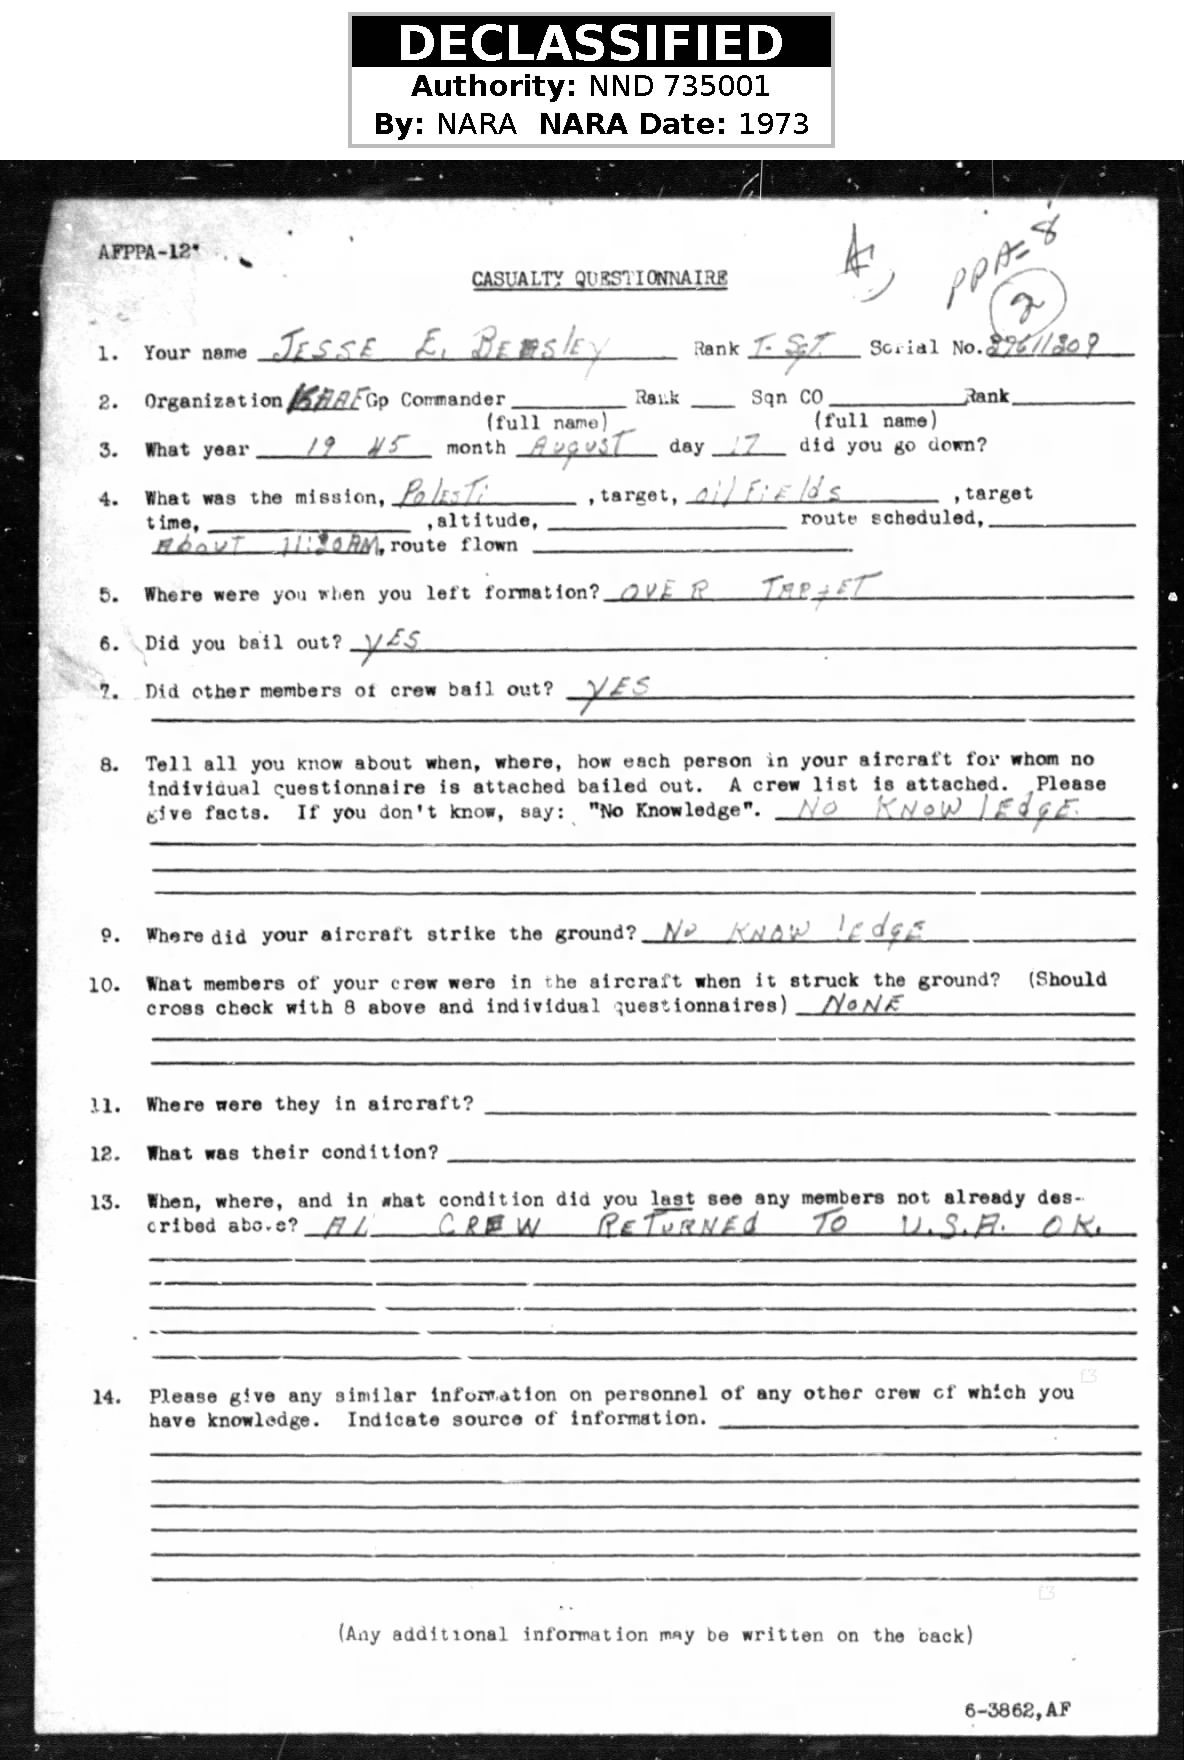 DECLASSIFIED
Authority: NND 735001
By: NARA NARA Date: 1973
AFPPA-12
A
PPA-8
2
CASUALTY QUESTIONNAIRE
1. Your name JESSE E. BEASLEY Rank T-SgT. Serial No. 39611209
2. Organization 15AAF Gp Commander Rank Sqn CO Rank
(full name) (full name)
3. What year 1945 month AugusT day 17 did you go down?
4. What was the mission, PolesTi, target, oil FiElds, target
time, , altitude, route scheduled,
About 11:30AM, route flown
5. Where were you when you left formation? OVER TARgET
6. Did you bail out? yES
7. Did other members of crew bail out? yES
8. Tell all you know about when, where, how each person in your aircraft for whom no
individual questionnaire is attached bailed out. A crew list is attached. Please
give facts. If you don't know, say: "No Knowledge". NO KNOWlEdgE.
9. Where did your aircraft strike the ground? No KNOWlEdgE
10. What members of your crew were in the aircraft when it struck the ground? (Should
cross check with 8 above and individual questionnaires) NoNE
11. Where were they in aircraft?
12. What was their condition?
13. When, where, and in what condition did you last see any members not already des-
cribed above? AL CREW RETURNEd TO U.S.A. OK.
14. Please give any similar information on personnel of any other crew of which you
have knowledge. Indicate source of information.
(Any additional information may be written on the back)
6-3862,AF